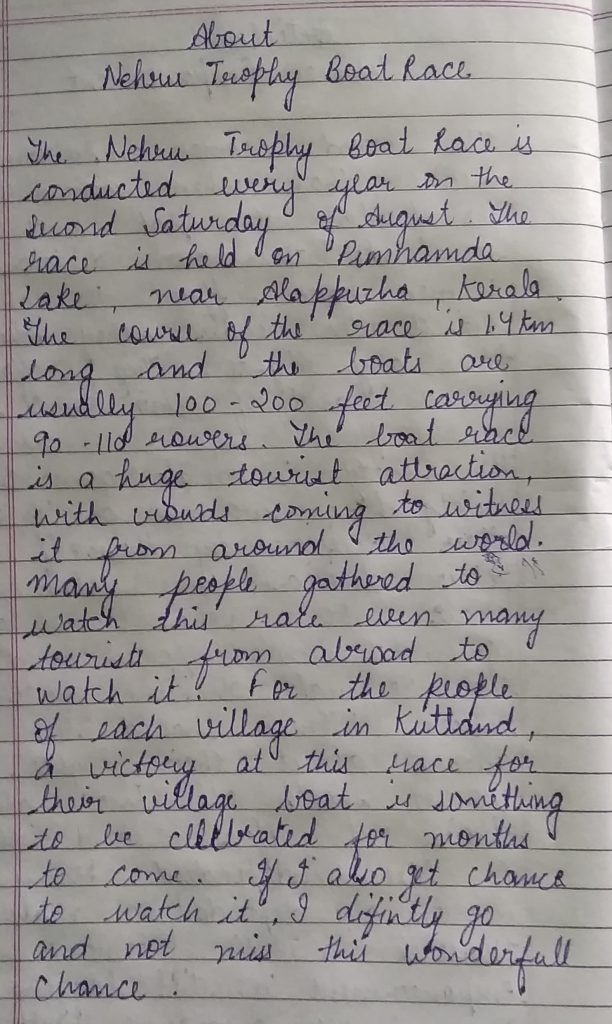 About
Nehru Trophy Boat Race
The Nehru Trophy Boat Race is
conducted every year on the
second Saturday of August. The
race is held on Punnamda
Lake, near Alappuzha, Kerala.
The course of the race is 1.4 km
long and the boats are
usually 100-200 feet carrying
90-110 rowers. The boat race
is a huge tourist attraction,
with crowds coming to witness
it from around the world.
Many people gathered to
watch this race even many
tourists from abroad to
watch it. For the people
of each village in Kuttand,
a victory at this race for
their village boat is something
to be cllebrated for months
to come. If I also get chance
to watch it, I difintly go
and not miss this wonderfull
chance.